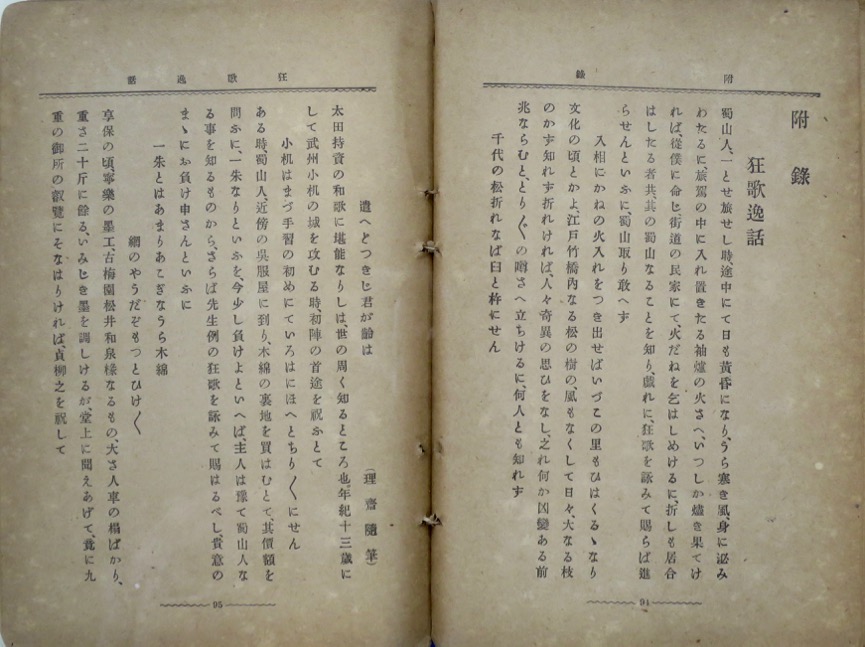 附錄
附錄
狂歌逸話
蜀山人、一とせ旅せし時、途中にて日も黃昏になり、うら寒き風、身に泌み
わたるに、旅駕の中に入れ置きたる袖爐の火さへ、いつしか燼き果てけ
れば、從僕に命じ街道の民家にて、火だねを乞はしめけるに、折しも居合
はしたる者共、其の蜀山なることを知り、戲れに、狂歌を詠みて賜らば進
らせんといふに、蜀山取り敢へず
入相にかねの火入れをつき出せばいづこの里もひはくるゝなり
文化の頃とかよ、江戶竹橋內なる松の樹の、風もなくして日々、大なる枝
のかず知れず折れければ、人々奇異の思ひをなし、之れ何か凶變ある前
兆ならむと、とり〴〵の噂さへ立ちけるに、何人とも知れず
千代の松折れなば臼と杵にせん
94
狂歌逸話
遣へどつきじ君が齡は
(理齋隨筆)
太田持資の和歌に堪能なりしは、世の周く知るところ也、年紀十三歲に
して武州小机の城を攻むる時、初陣の首途を祝ふとて
小机はまづ手習の初めにていろはにほへとちり〴〵にせん
ある時、蜀山人、近傍の吳服屋に到り、木綿の裏地を買はむとて、其價額を
問ふに、一朱なりといふを、今少し負けよといへば、主人は豫て蜀山人な
る事を知るものから、さらば先生例の狂歌を詠みて賜はるべし、貴意の
まゝにお負け申さんといふに
一朱とはあまりあこぎなうら木綿
網のやうだぞもつとひけ〳〵
享保の頃、寧樂の墨工、古梅園松井和泉椽なるもの、大さ人車の榻ばかり、
重さ二十斤に餘る、いみじき墨を調しけるが、堂上に聞えあげて、竟に九
重の御所の叡覽にそなはりければ、貞柳之を祝して
95